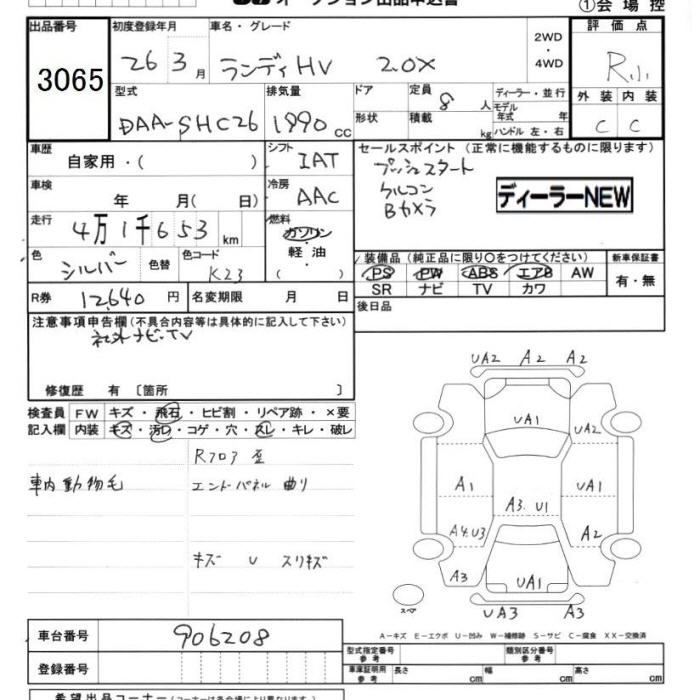 オークション出品申込書
①会場控
出品番号 初度登録年月 車名・グレード 2WD・4WD 評価点
3065 26 3月 ランディHV 2.0X R
型式 排気量 ドア 定員 ディーラー・並行 外装 内装
DAA-SHC26 1990cc 形状 積載 8人 kg モデル年式 年 ハンドル 左・右 C C
車歴 シフト セールスポイント (正常に機能するものに限ります)
自家用・( ) IAT プッシュスタート
車検 冷房 クルコン
年 月( 日) AAC Bカメラ ディーラーNEW
走行 燃料
4万1千653km ガソリン・軽油・( )
色 シルバー 色替 色コード K23
装備品 (純正品に限り○をつけてください) 新車保証書
PS PW ABS エアB AW 有・無
SR ナビ TV カワ
R券 12,640円 名変期限 月 日 後日品
注意事項申告欄 (不具合内容等は具体的に記入して下さい)
社外ナビ・TV
修復歴 有 〔箇所 〕
検査員 FW キズ・飛石・ヒビ割・リペア跡・×要
記入欄 内装 キズ・汚れ・コゲ・穴・スレ・キレ・破レ
Rフロア 歪
車内動物毛 エンドパネル 曲り
キズ U スリキズ
UA2 A2 A2
UA1 UA2
A1 A3.U1 UA1
A4.U3 A2
A3 UA1
スペア UA3 A3
A-キズ E-エクボ U-凹み W-補修跡 S-サビ C-腐食 XX-交換済
車台番号 906208
型式指定番号 参考 類別区分番号 参考
登録番号 車庫証明用 参考 長さ cm 幅 cm 高さ cm
希望出品コーナー (コーナーは各会場により異なります。)